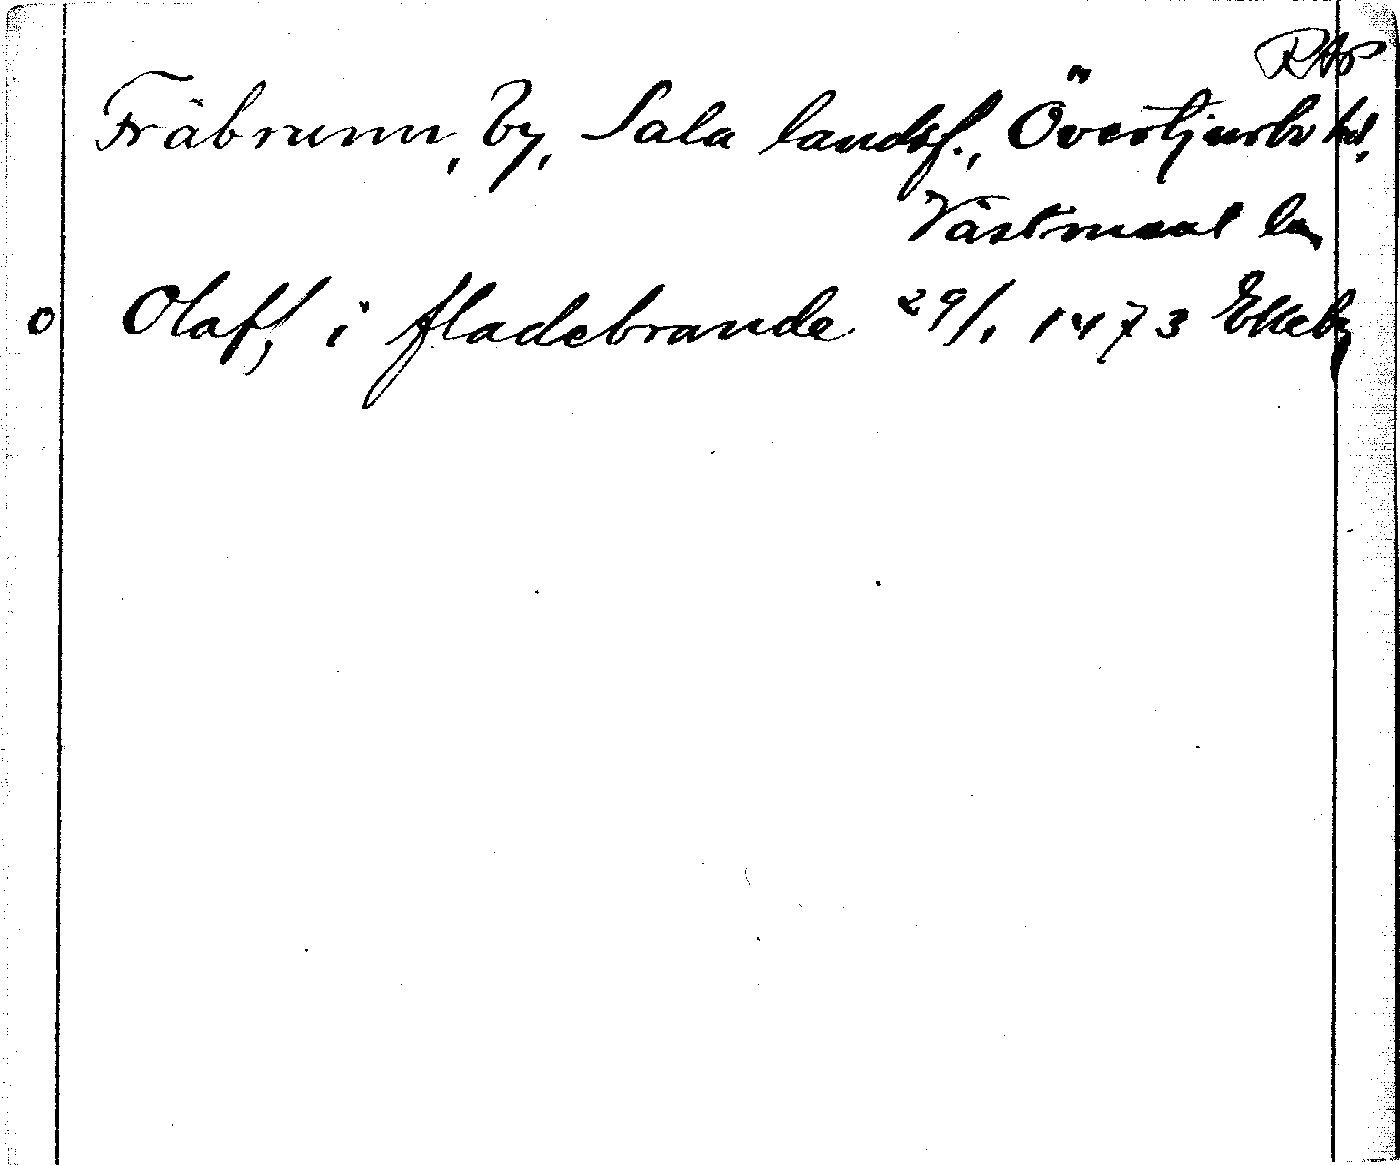 RAP
Fräbrunn, by, Sala landsf., Övertjurbo hd,
Västmanl län
o Olaff, i fladebrande 29/1 1473 Ekeby